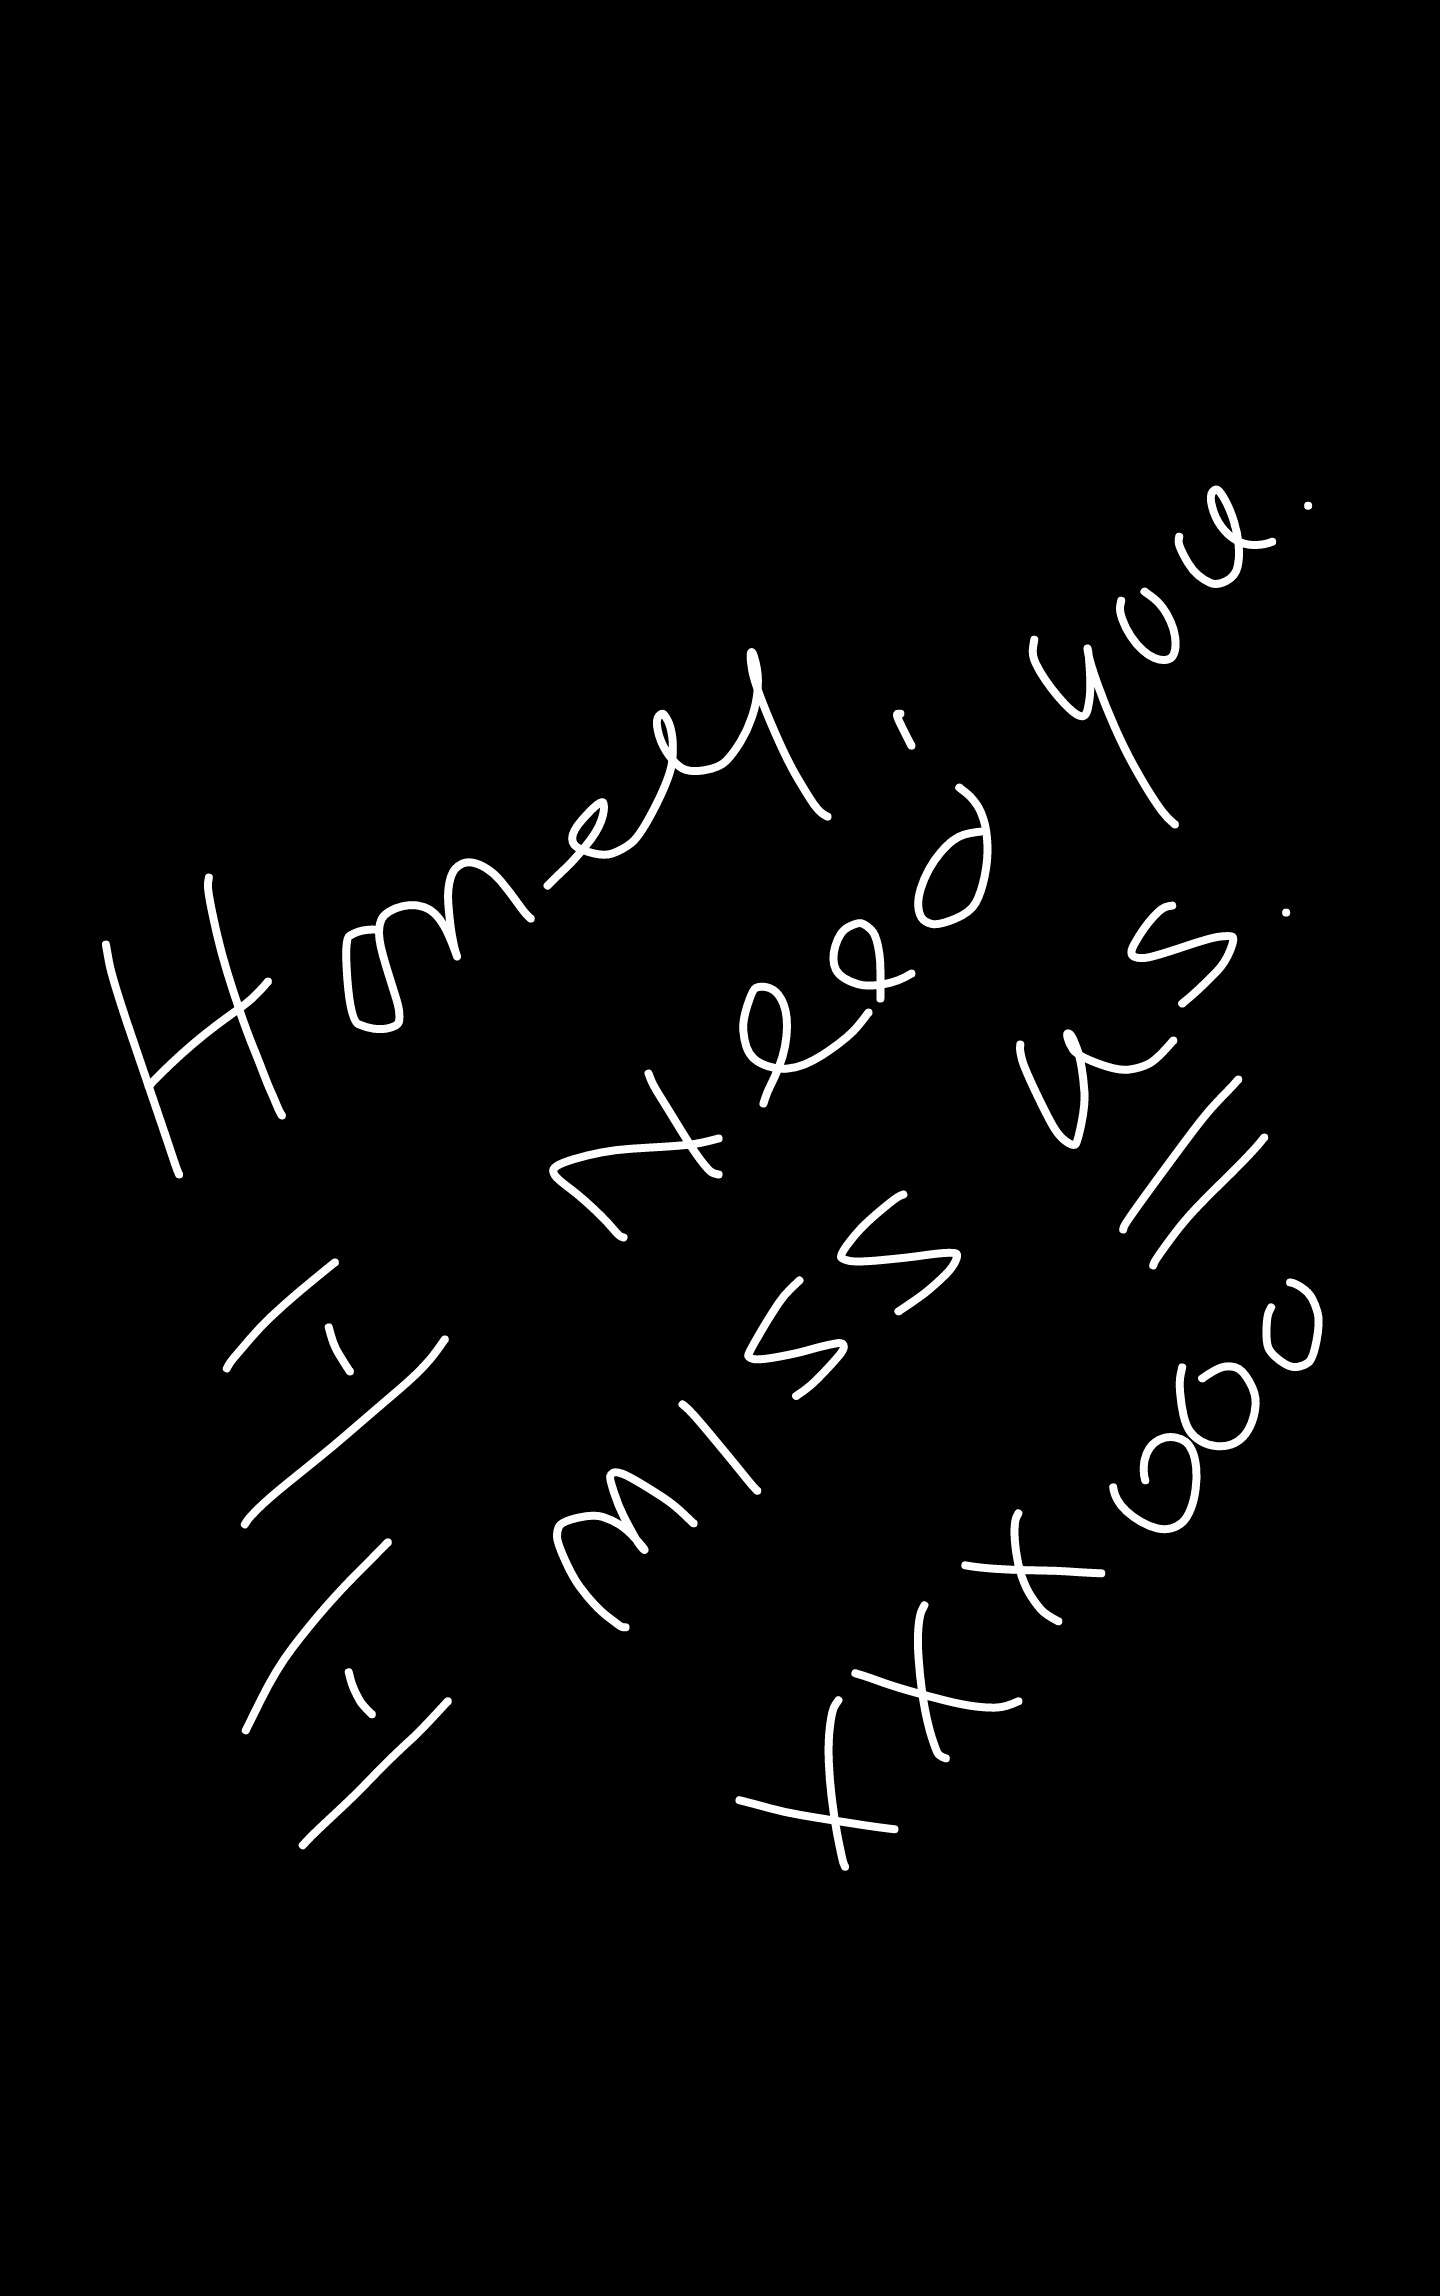 Honey,
I need you.
I miss us.
xxxooo